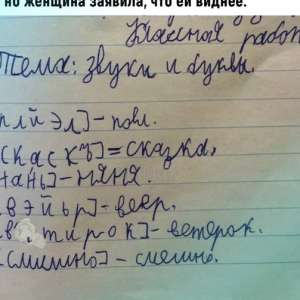 но женщина заявила, что ей виднее.
Классная работ
Тема: звуки и буквы.
эл]-повл.
[скаскъ]=сказка.
нань]-няня.
вэйър]-веер.
тирок]-ветерок.
[смишно]-смешно.